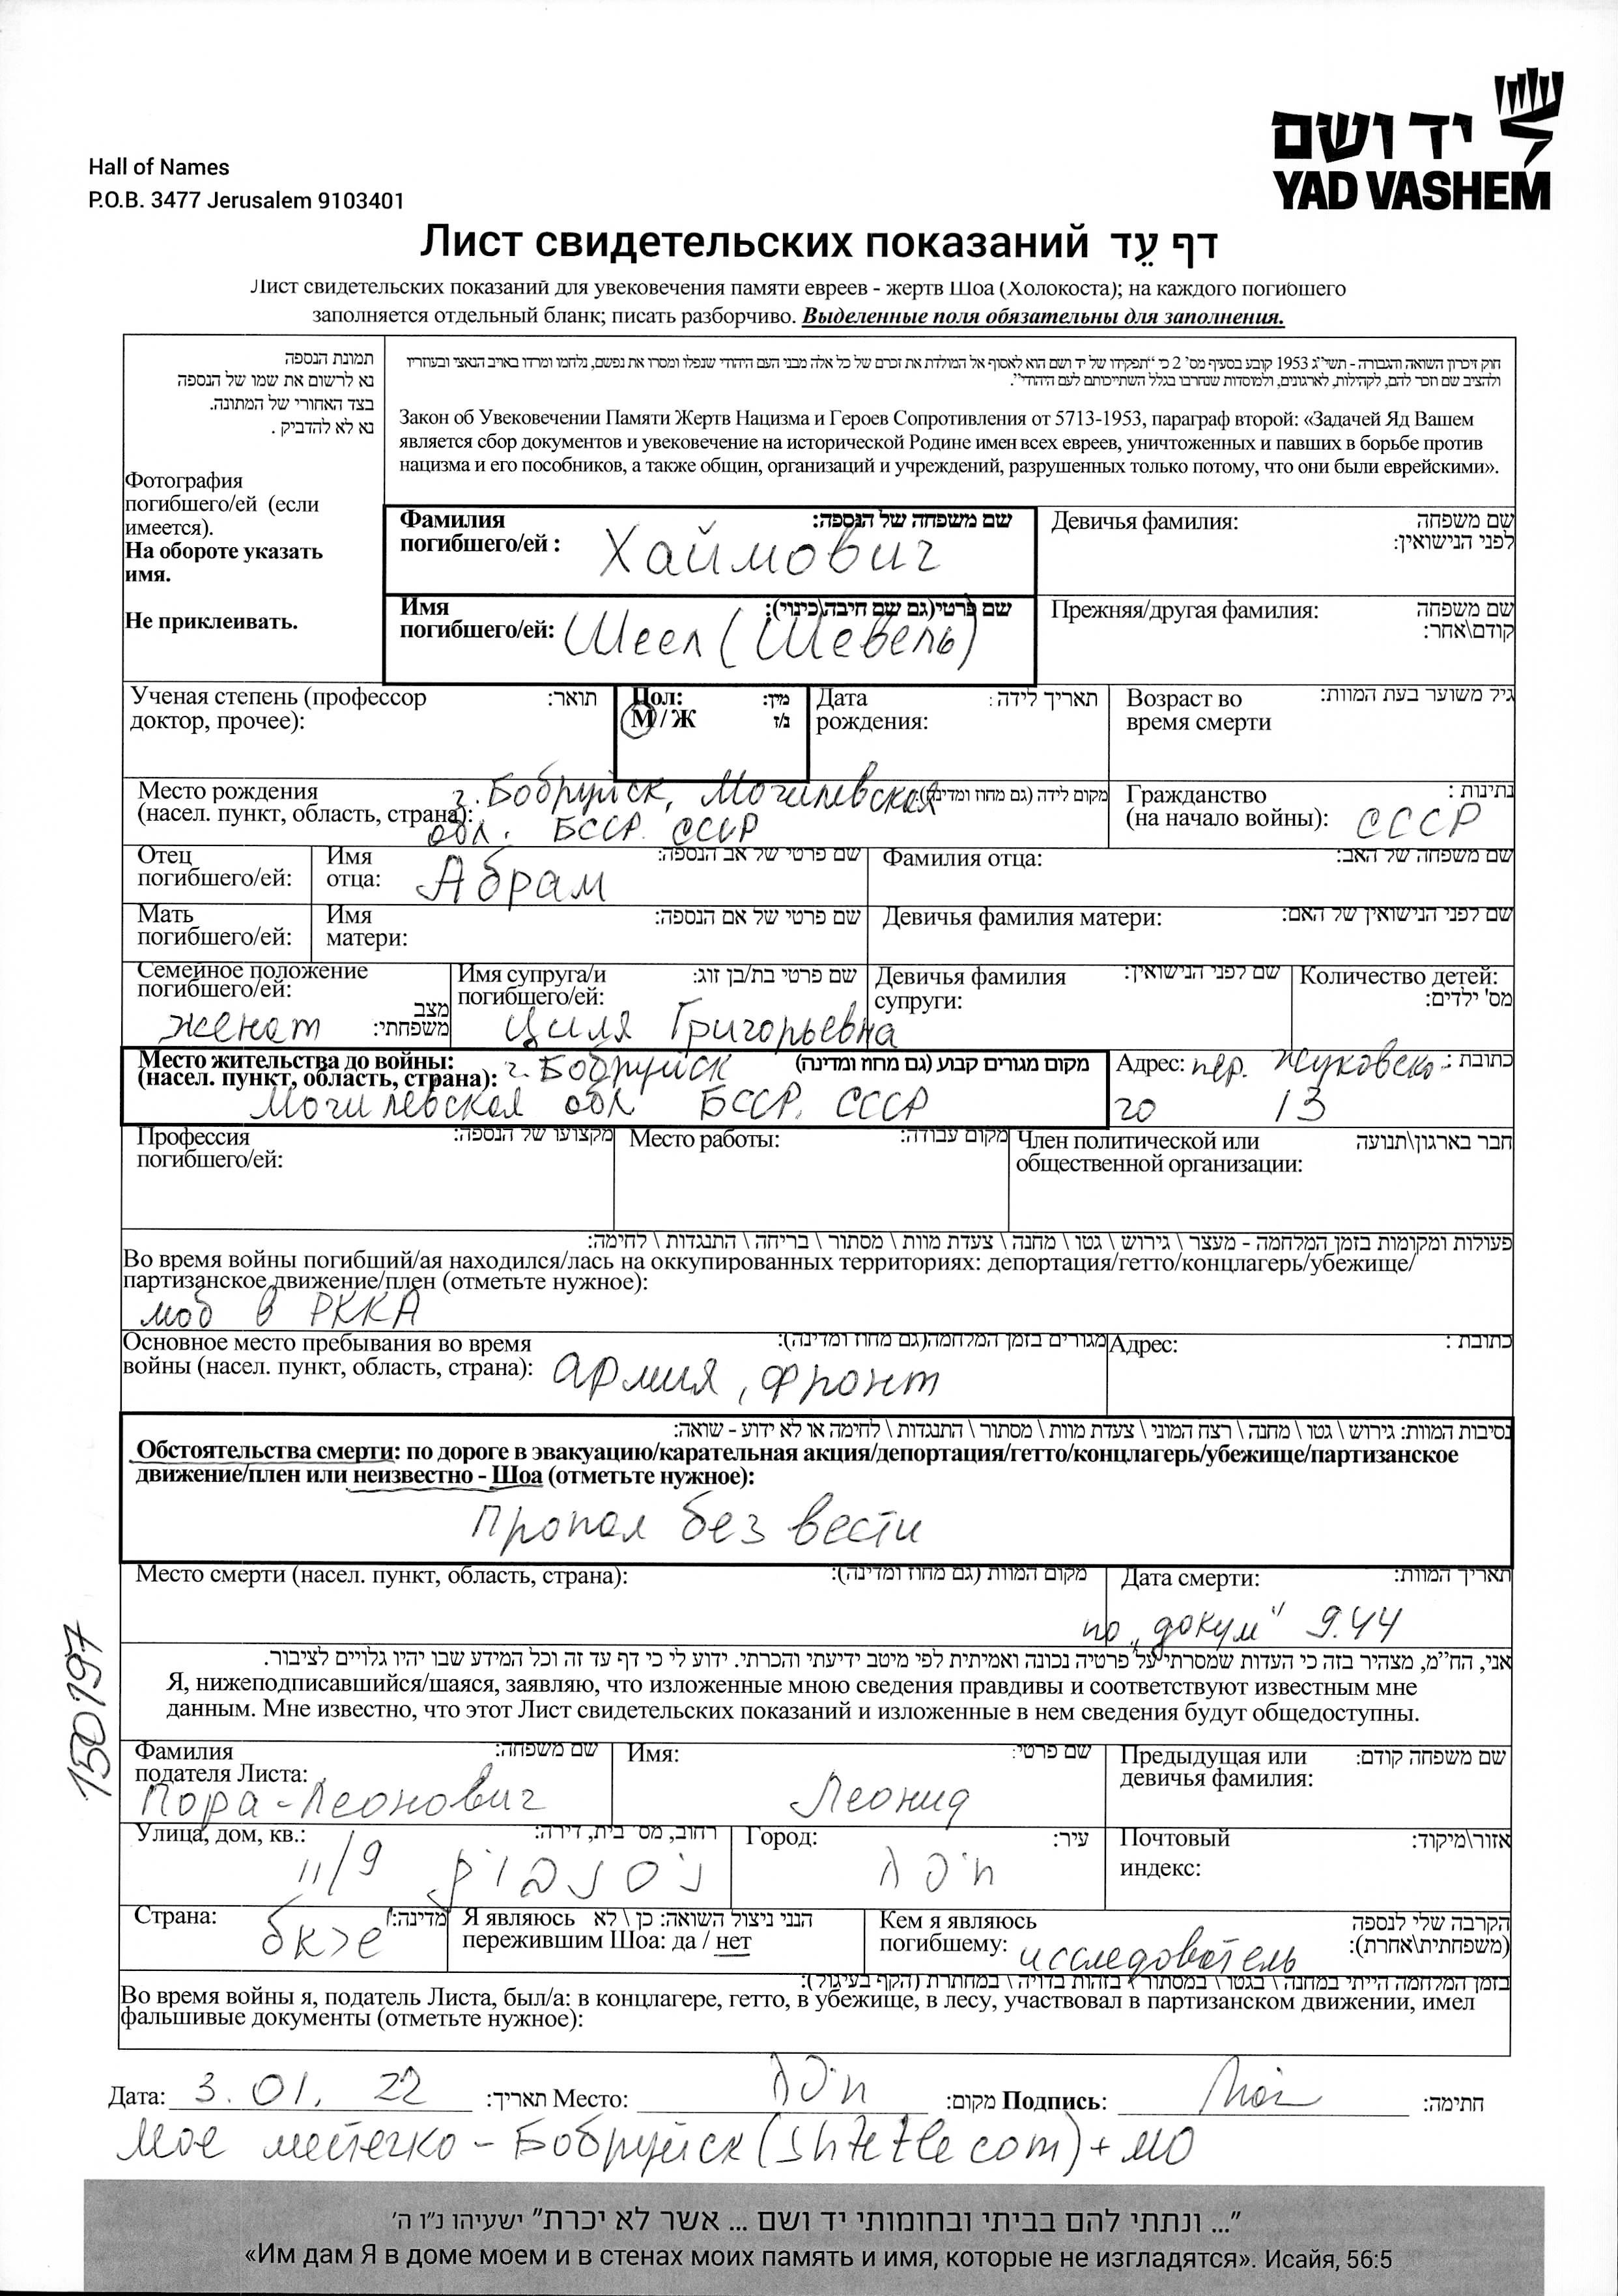 יד ושם
YAD VASHEM
Hall of Names
P.O.B. 3477 Jerusalem 9103401
Лист свидетельских показаний דף עֵד
Лист свидетельских показаний для увековечения памяти евреев - жертв Шоа (Холокоста); на каждого погибшего
заполняется отдельный бланк; писать разборчиво. Выделенные поля обязательны для заполнения.
תמונת הנספה
נא לרשום את שמו של הנספה
בצד האחורי של המתונה.
נא לא להדביק .
Фотография
погибшего/ей (если
имеется).
На обороте указать
имя.
Не приклеивать.
חוק זיכרון השואה והגבורה - תשי"ג 1953 קובע בסעיף מס' 2 כי "תפקידו של יד ושם הוא לאסוף אל המולדת את זכרם של כל אלה מבני העם היהודי שנפלו ומסרו את נפשם, נלחמו ומרדו באויב הנאצי ובעוזריו
ולהציב שם וזכר להם, לקהילות, לארגונים, ולמוסדות שנחרבו בגלל השתייכותם לעם היהודי".
Закон об Увековечении Памяти Жертв Нацизма и Героев Сопротивления от 5713-1953, параграф второй: «Задачей Яд Вашем
является сбор документов и увековечение на исторической Родине имен всех евреев, уничтоженных и павших в борьбе против
нацизма и его пособников, а также общин, организаций и учреждений, разрушенных только потому, что они были еврейскими».
Фамилия погибшего/ей : שם משפחה של הנספה:
Хаймович
Девичья фамилия: שם משפחה לפני הנישואין:
Имя погибшего/ей: שם פרטי(גם שם חיבה\כינוי):
Шеел (Шевель)
Прежняя/другая фамилия: שם משפחה קודם\אחר:
Ученая степень (профессор доктор, прочее): תואר:
Пол: מין:
М / Ж ז/נ
Дата рождения: תאריך לידה :
Возраст во время смерти גיל משוער בעת המוות:
Место рождения (насел. пункт, область, страна): מקום לידה (גם מחוז ומדינה):
г. Бобруйск, Могилевская
обл. БССР. СССР
Гражданство (на начало войны): נתינות :
СССР
Отец погибшего/ей:
Имя отца: שם פרטי של אב הנספה:
Абрам
Фамилия отца: שם משפחה של האב:
Мать погибшего/ей:
Имя матери: שם פרטי של אם הנספה:
Девичья фамилия матери: שם לפני הנישואין של האם:
Семейное положение погибшего/ей: מצב משפחתי:
женат
Имя супруга/и погибшего/ей: שם פרטי בת/בן זוג:
Циля Григорьевна
Девичья фамилия супруги: שם לפני הנישואין:
Количество детей: מס' ילדים:
Место жительства до войны: (насел. пункт, область, страна): מקום מגורים קבוע (גם מחוז ומדינה)
г. Бобруйск
Могилевская обл БССР. СССР
Адрес: כתובת :
пер. Жуковско-
го 13
Профессия погибшего/ей: מקצועו של הנספה:
Место работы: מקום עבודה:
Член политической или общественной организации: חבר בארגון\תנועה
פעולות ומקומות בזמן המלחמה - מעצר \ גירוש \ גטו \ מחנה \ צעדת מוות \ מסתור \ בריחה \ התנגדות \ לחימה:
Во время войны погибший/ая находился/лась на оккупированных территориях: депортация/гетто/концлагерь/убежище/
партизанское движение/плен (отметьте нужное):
моб в РККА
Основное место пребывания во время войны (насел. пункт, область, страна): מגורים בזמן המלחמה(גם מחוז ומדינה):
армия, фронт
Адрес: כתובת :
נסיבות המוות: גירוש \ גטו \ מחנה \ רצח המוני \ צעדת מוות \ מסתור \ התנגדות \ לחימה או לא ידוע - שואה:
Обстоятельства смерти: по дороге в эвакуацию/карательная акция/депортация/гетто/концлагерь/убежище/партизанское
движение/плен или неизвестно - Шоа (отметьте нужное):
Пропал без вести
Место смерти (насел. пункт, область, страна): מקום המוות (גם מחוז ומדינה):
Дата смерти: תאריך המוות:
по "докум" 9.44
אני, הח"מ, מצהיר בזה כי העדות שמסרתי על פרטיה נכונה ואמיתית לפי מיטב ידיעתי והכרתי. ידוע לי כי דף עד זה וכל המידע שבו יהיו גלויים לציבור.
Я, нижеподписавшийся/шаяся, заявляю, что изложенные мною сведения правдивы и соответствуют известным мне
данным. Мне известно, что этот Лист свидетельских показаний и изложенные в нем сведения будут общедоступны.
150197
Фамилия подателя Листа: שם משפחה:
Пора-Леонович
Имя: שם פרטי:
Леонид
Предыдущая или девичья фамилия: שם משפחה קודם:
Улица, дом, кв.: רחוב, מס' בית, דירה:
11/9
Город: עיר:
חיפה
Почтовый индекс: אזור\מיקוד:
Страна: מדינה:
Я являюсь пережившим Шоа: да / нет הנני ניצול השואה: כן \ לא
Кем я являюсь погибшему: הקרבה שלי לנספה (משפחתית\אחרת):
исследователь
בזמן המלחמה הייתי במחנה \ בגטו \ במסתור \ בזהות בדויה \ במחתרת (הקף בעיגול):
Во время войны я, податель Листа, был/а: в концлагере, гетто, в убежище, в лесу, участвовал в партизанском движении, имел
фальшивые документы (отметьте нужное):
Дата: 3. 01. 22 תאריך: Место: חיפה מקום: Подпись: חתימה:
Мое местечко - Бобруйск (shtetle com) + МО
"... ונתתי להם בביתי ובחומותי יד ושם ... אשר לא יכרת" ישעיהו נ"ו ה'
«Им дам Я в доме моем и в стенах моих память и имя, которые не изгладятся». Исайя, 56:5